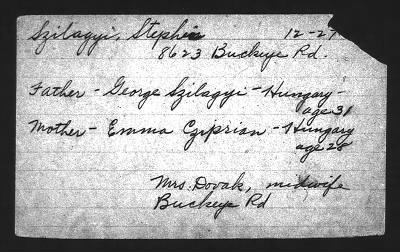 Szilagyi, Stephen 12-27
8623 Buckeye Rd.
Father - George Szilagyi - Hungary -
age 31
Mother - Emma Cziprian - Hungary
age 28
Mrs. Dovak, midwife
Buckeye Rd